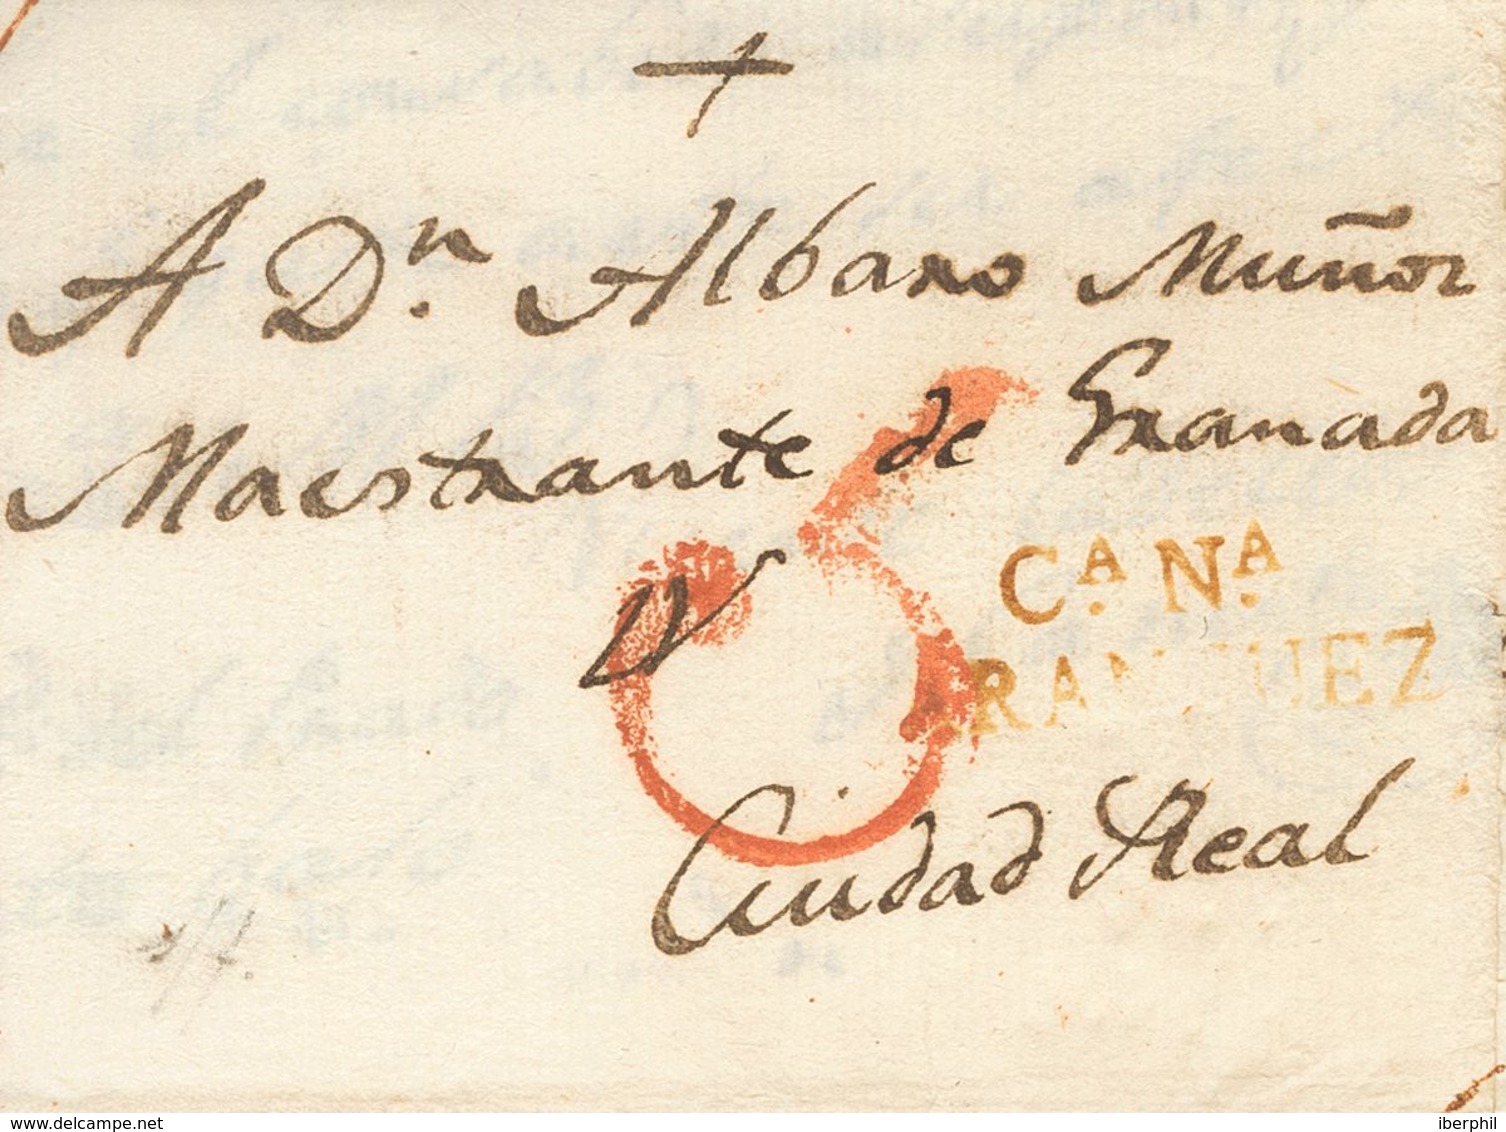 +
A Dn. Albaro Muñoz
Maestrante de Granada
CA. NA.
ARANJUEZ
Ciudad Real
delcampe.net
iberphil